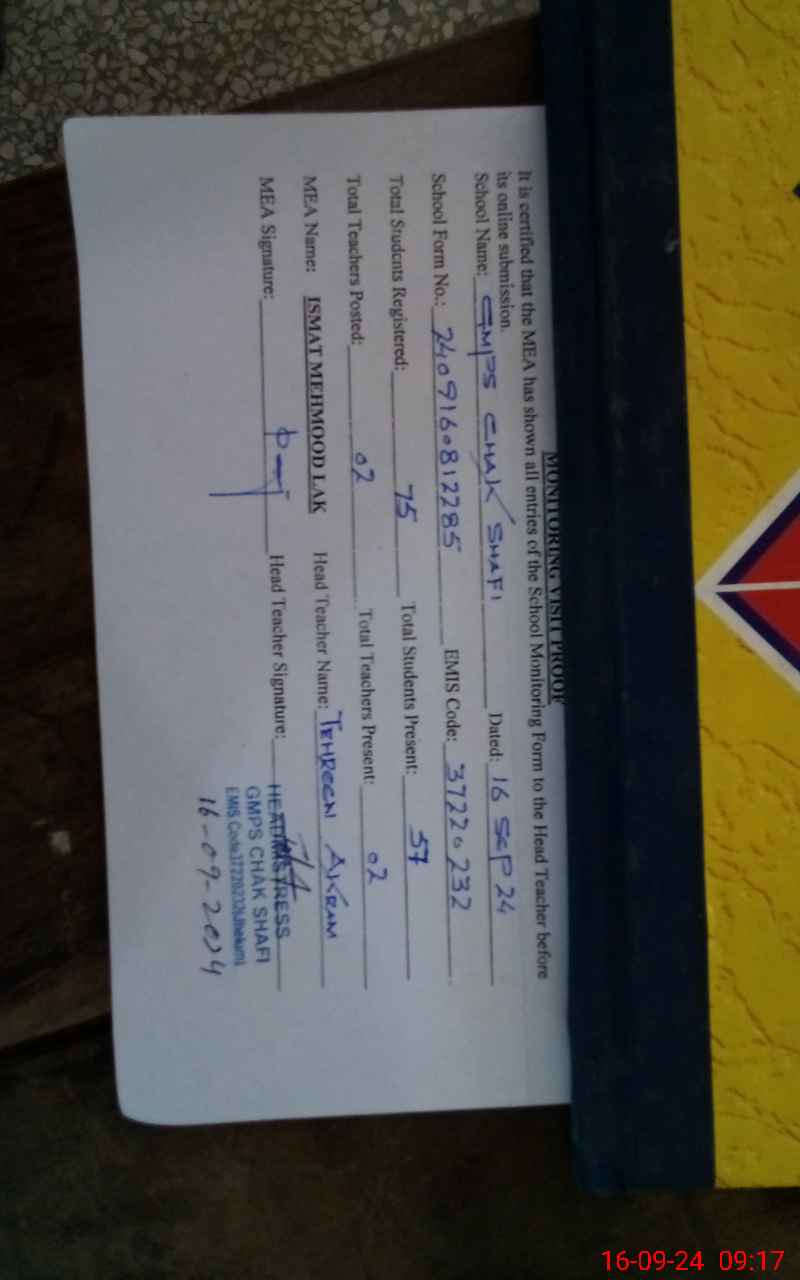 MONITORING VISIT PROOF
It is certified that the MEA has shown all entries of the School Monitoring Form to the Head Teacher before
its online submission.
School Name: GMPS CHAK SHAFI Dated: 16 SEP 24
School Form No.: 2409160812285 EMIS Code: 37220232
Total Students Registered: 75 Total Students Present: 57
Total Teachers Posted: 02 Total Teachers Present: 02
MEA Name: ISMAT MEHMOOD LAK Head Teacher Name: TEHREEN AKRAM
MEA Signature: Head Teacher Signature:
HEADMISTRESS
GMPS CHAK SHAFI
EMIS Code37220232
16-09-2024
16-09-24 09:17